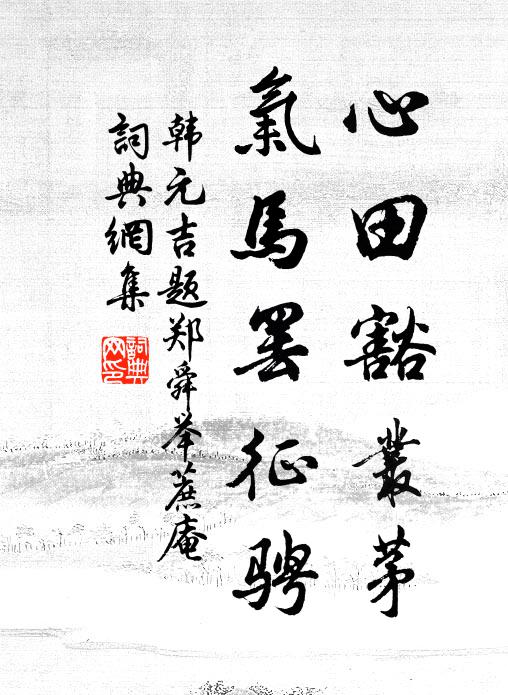 心田豁叢茅
氣馬罢征骋
韩元吉题郑舜举蔗庵
詞典網集
詞典網印